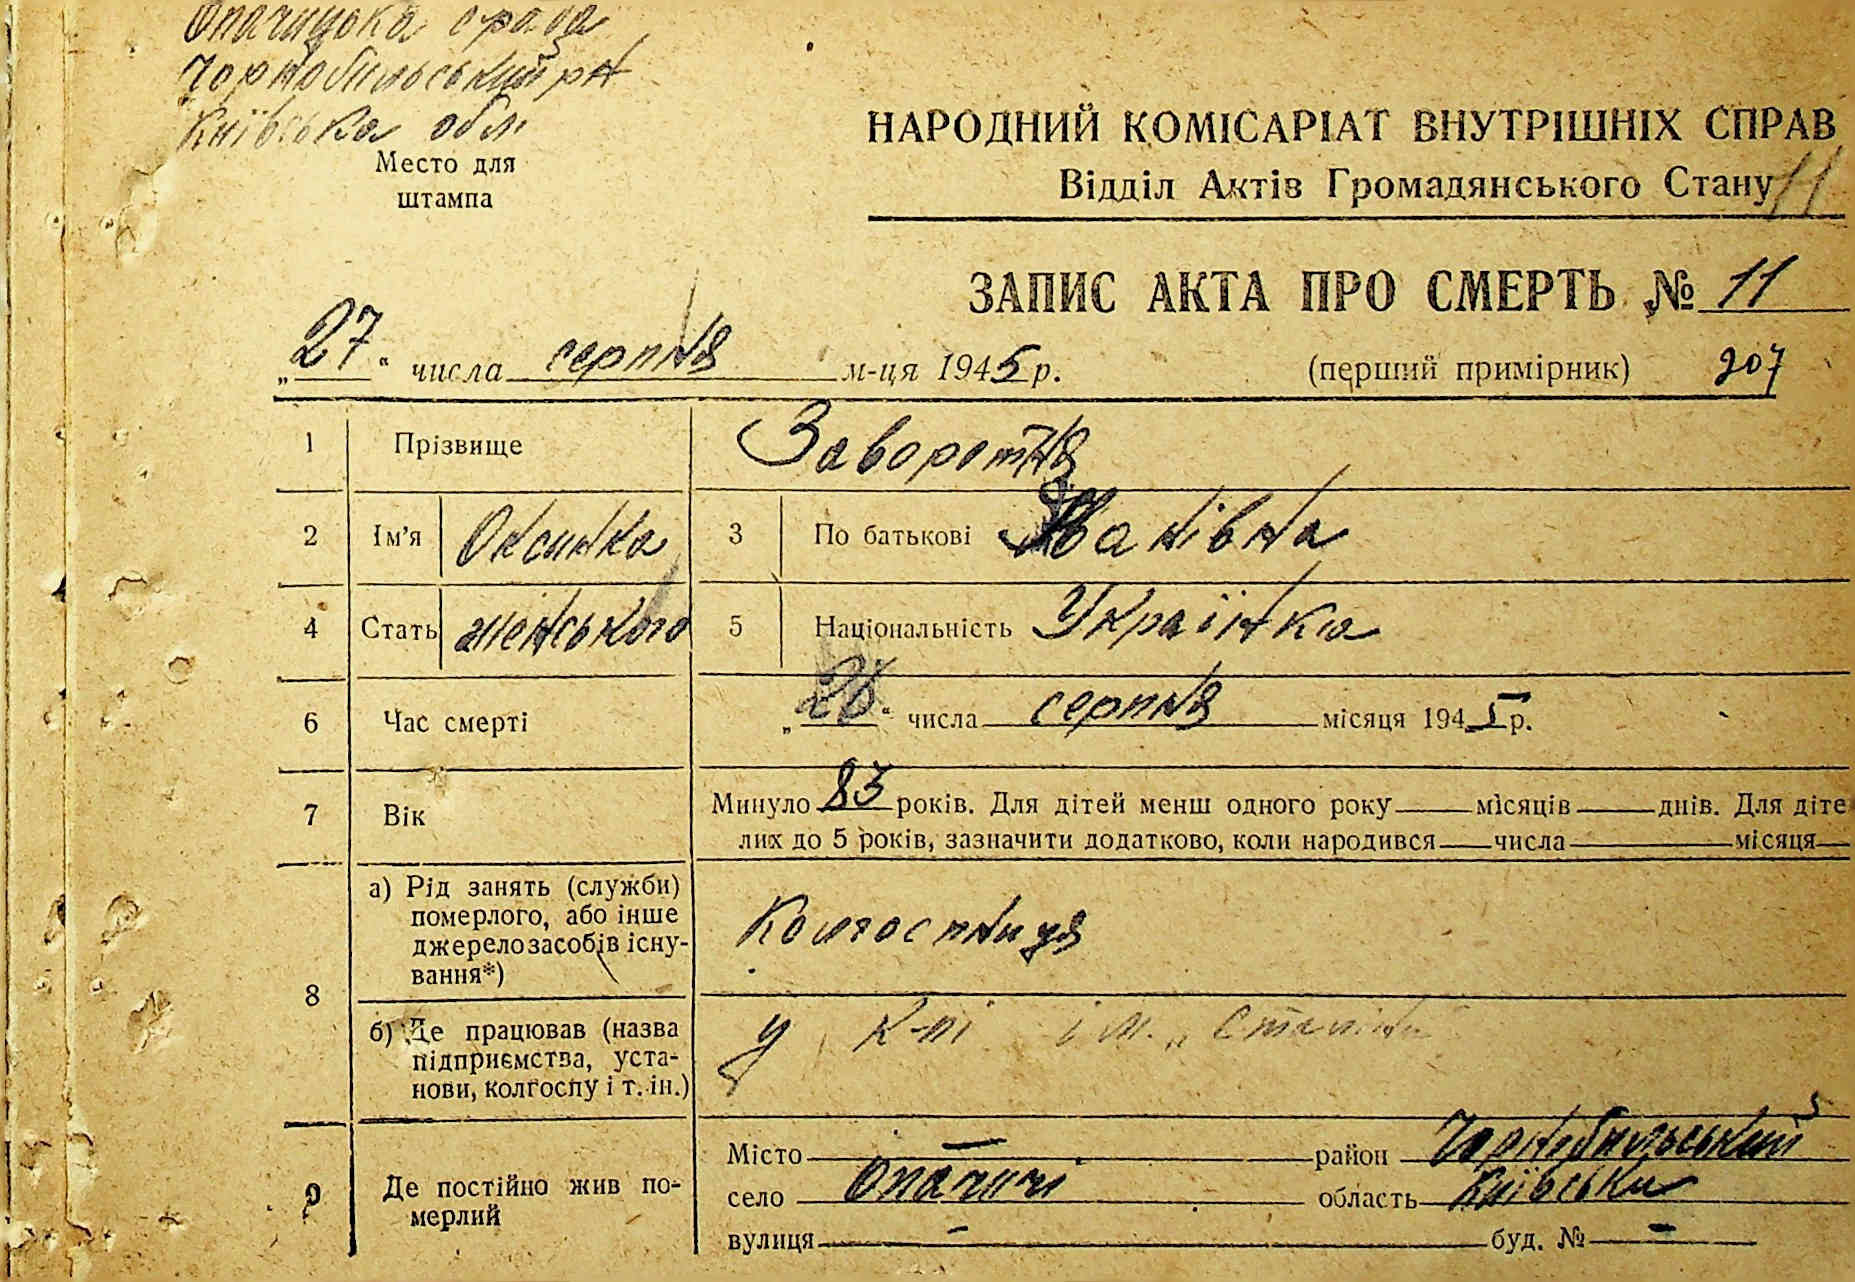 Опачицька с рада
Чорнобильський р-н
Київська обл
Место для
штампа
НАРОДНИЙ КОМІСАРІАТ ВНУТРІШНІХ СПРАВ
Відділ Актів Громадянського Стану 11
ЗАПИС АКТА ПРО СМЕРТЬ № 11
„27“ числа серпня м-ця 1945 р. (перший примірник) 207
1 Прізвище Заворотня
2 Ім’я Оксинка 3 По батькові Іванівна
4 Стать женського 5 Національність Українка
6 Час смерті „26“ числа серпня місяця 1945 р.
7 Вік Минуло 83 років. Для дітей менш одного року місяців днів. Для діте
лих до 5 років, зазначити додатково, коли народився числа місяця
8 а) Рід занять (служби)
померлого, або інше
джерело засобів існу-
вання*) Колгоспниця
б) Де працював (назва
підприємства, уста-
нови, колгоспу і т. ін.) у к-пі ім. „Сталіна
9 Де постійно жив по-
мерлий
Місто — район Чорнобильський
село Опачичі область Київська
вулиця – буд. № –